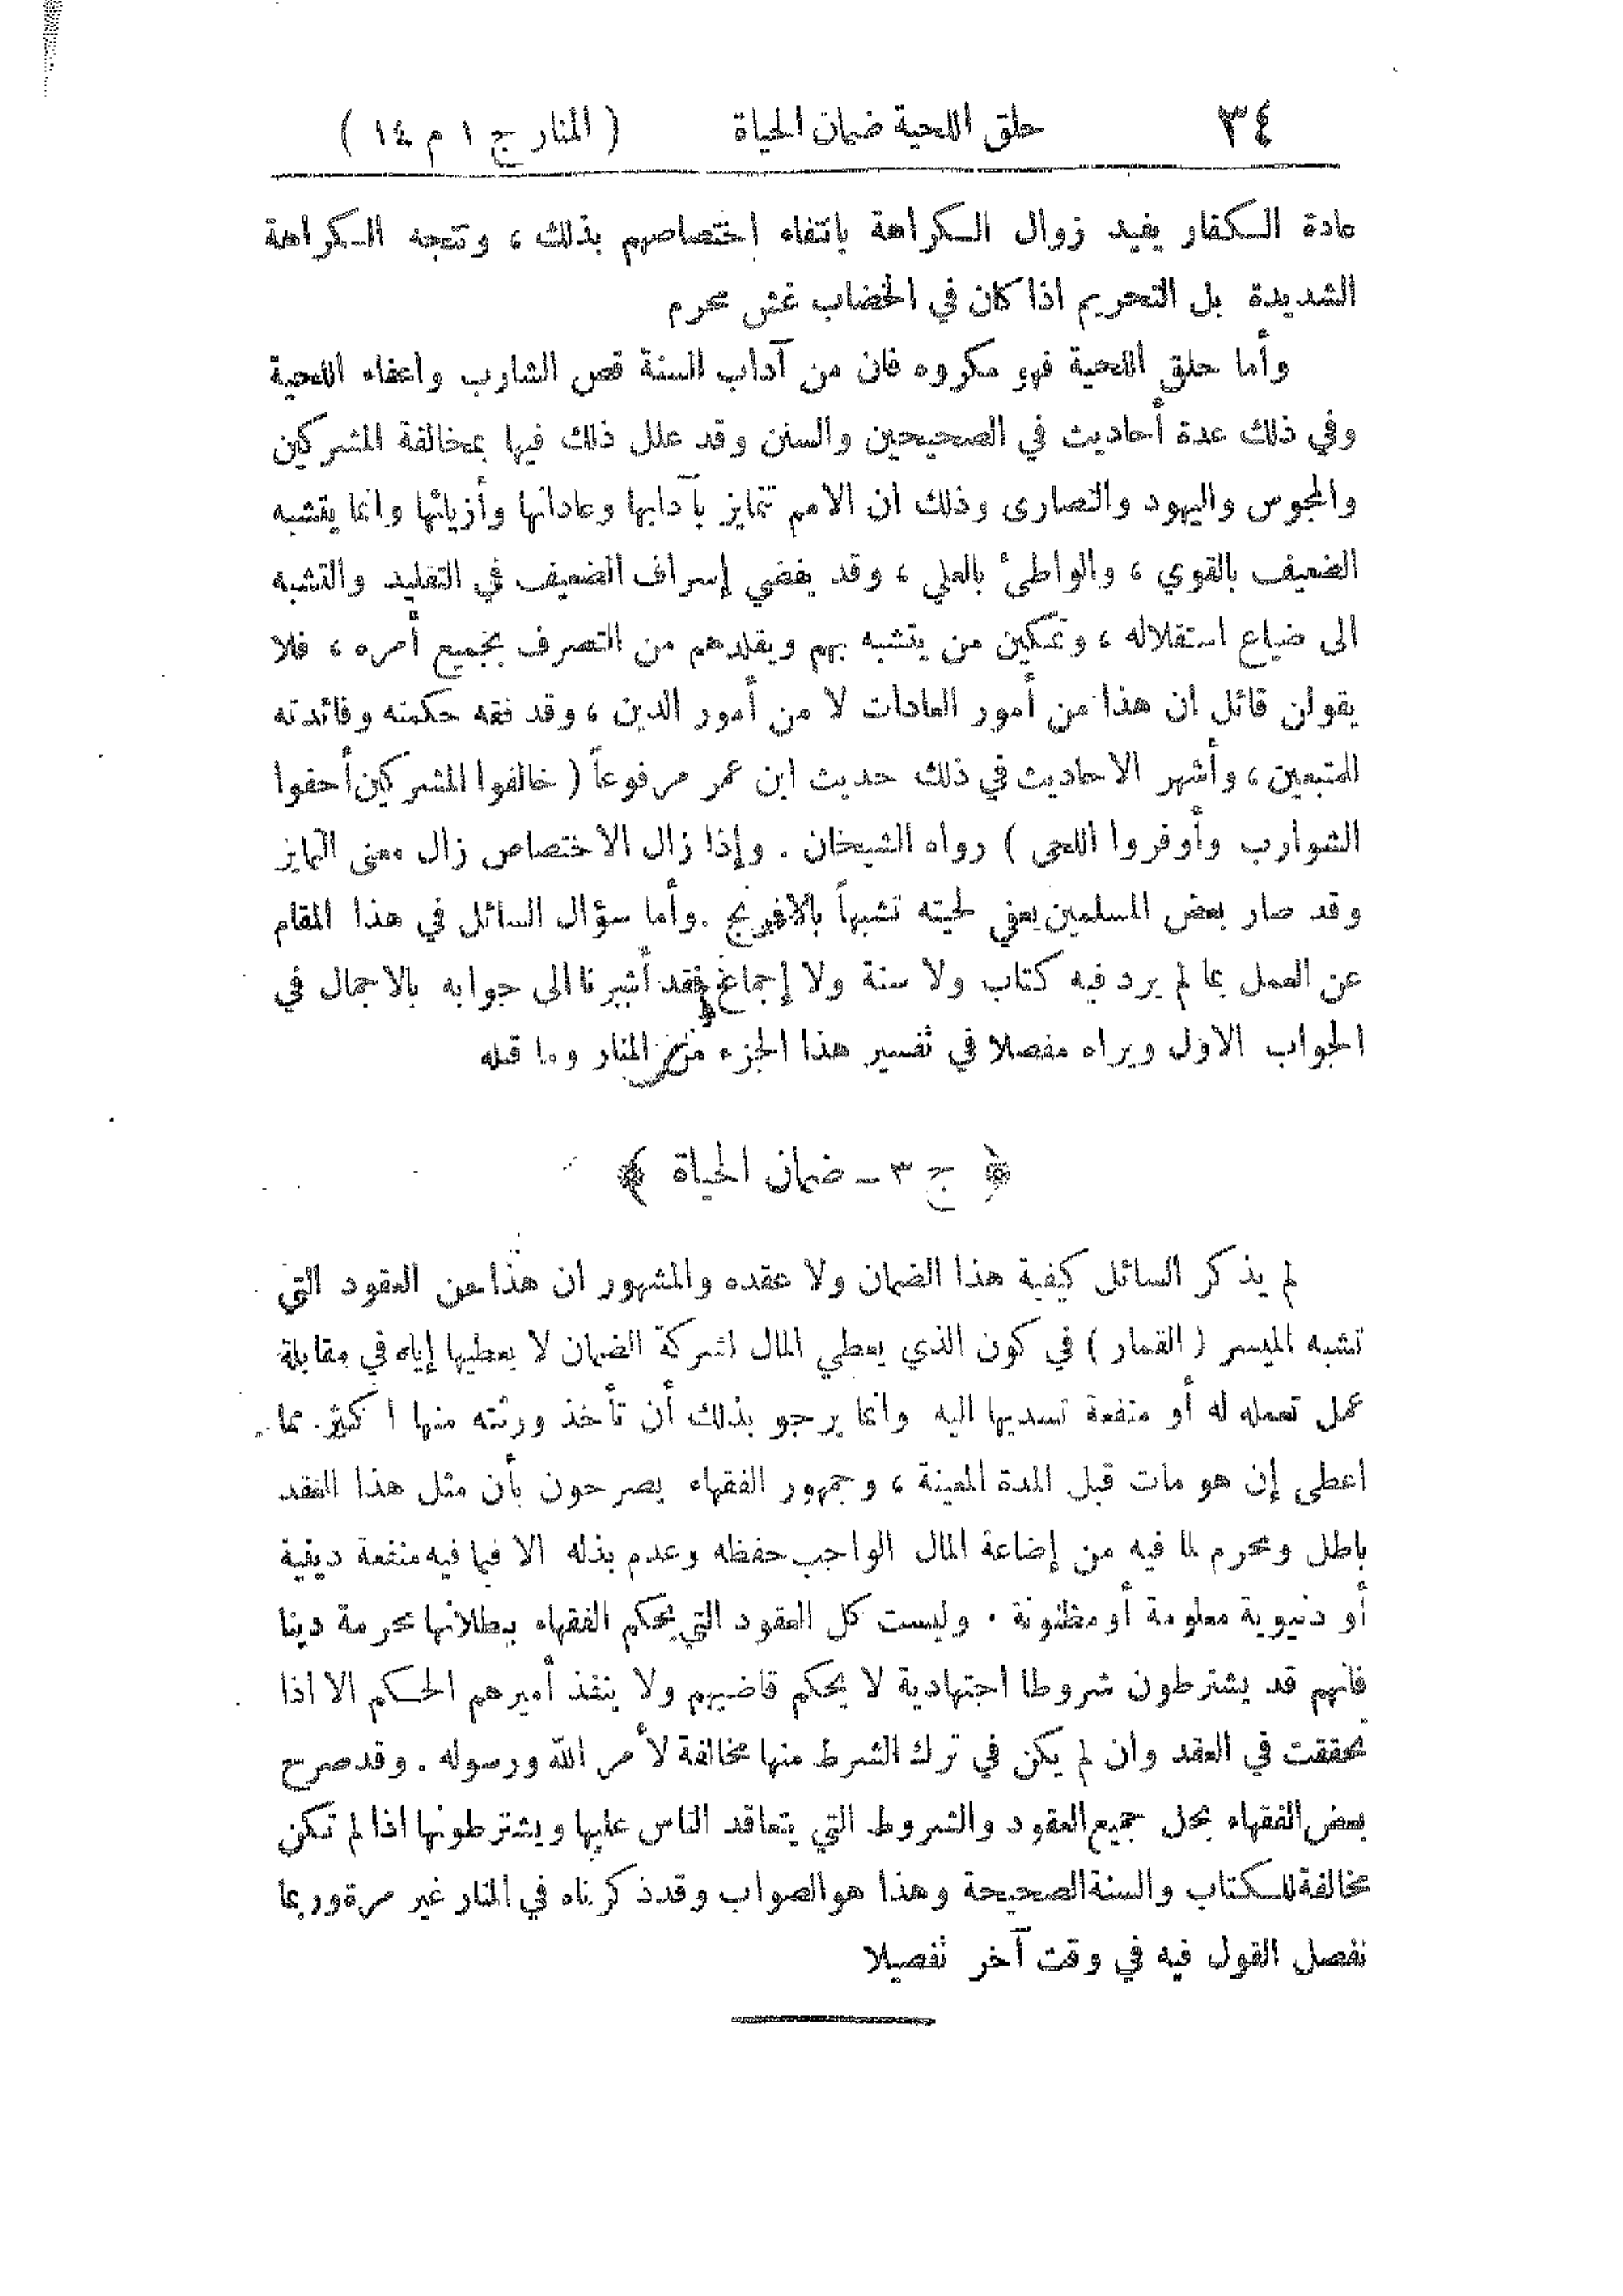 ٣٤ حلق اللحية ضمان الحياة ( المنار ج ١ م ١٤ )
عادة الكفار يفيد زوال الكراهة بانتفاء اختصاصهم بذلك ، وتتجه الكراهة
الشديدة بل التحريم اذا كان في الخضاب غش محرم
وأما حلق اللحية فهو مكروه فان من آداب السنة قص الشارب واعفاء اللحية
وفي ذلك عدة أحاديث في الصحيحين والسنن وقد علل ذلك فيها بمخالفة المشركين
والمجوس واليهود والنصارى وذلك ان الامم تتمايز بآدابها وعاداتها وأزيائها وانما يتشبه
الضعيف بالقوي ، والواطئ بالعلي ، وقد يفضي إسراف الضعيف في التقليد والتشبه
الى ضياع استقلاله ، وتمكين من يتشبه بهم ويقلدهم من التصرف بجميع أمره ، فلا
يقولن قائل ان هذا من أمور العادات لا من أمور الدين ، وقد فقه حكمته وفائدته
المتبعين ، وأشهر الاحاديث في ذلك حديث ابن عمر مرفوعاً ( خالفوا المشركين أحفوا
الشوارب وأوفروا اللحى ) رواه الشيخان . وإذا زال الاختصاص زال معنى التمايز
وقد صار بعض المسلمين يعفي لحيته تشبهاً بالافرنج . وأما سؤال السائل في هذا المقام
عن العمل بما لم يرد فيه كتاب ولا سنة ولا إجماع فقد أشرنا الى جوابه بالاجمال في
الجواب الاول ويراه مفصلا في تفسير هذا الجزء من المنار وما قبله
﴿ ج ٣ ـ ضمان الحياة ﴾
لم يذكر السائل كيفية هذا الضمان ولا عقده والمشهور ان هذا من العقود التي
تشبه الميسر ( القمار ) في كون الذي يعطي المال لشركة الضمان لا يعطيها إياه في مقابلة
عمل تعمله له أو منفعة تسديها اليه وانما يرجو بذلك أن تأخذ ورثته منها اكثر مما
اعطى إن هو مات قبل المدة المعينة ، وجمهور الفقهاء يصرحون بأن مثل هذا العقد
باطل ومحرم لما فيه من إضاعة المال الواجب حفظه وعدم بذله الا فيما فيه منفعة دينية
أو دنيوية معلومة أو مظنونة . وليست كل العقود التي يحكم الفقهاء ببطلانها محرمة دينا
فانهم قد يشترطون شروطا اجتهادية لا يحكم قاضيهم ولا ينفذ أميرهم الحكم الا اذا
تحققت في العقد وان لم يكن في ترك الشرط منها مخالفة لأمر الله ورسوله . وقد صرح
بعض الفقهاء بحل جميع العقود والشروط التي يتعاقد الناس عليها ويشترطونها اذا لم تكن
مخالفة للكتاب والسنة الصحيحة وهذا هو الصواب وقد ذكرناه في المنار غير مرة وربما
نفصل القول فيه في وقت آخر تفصيلا